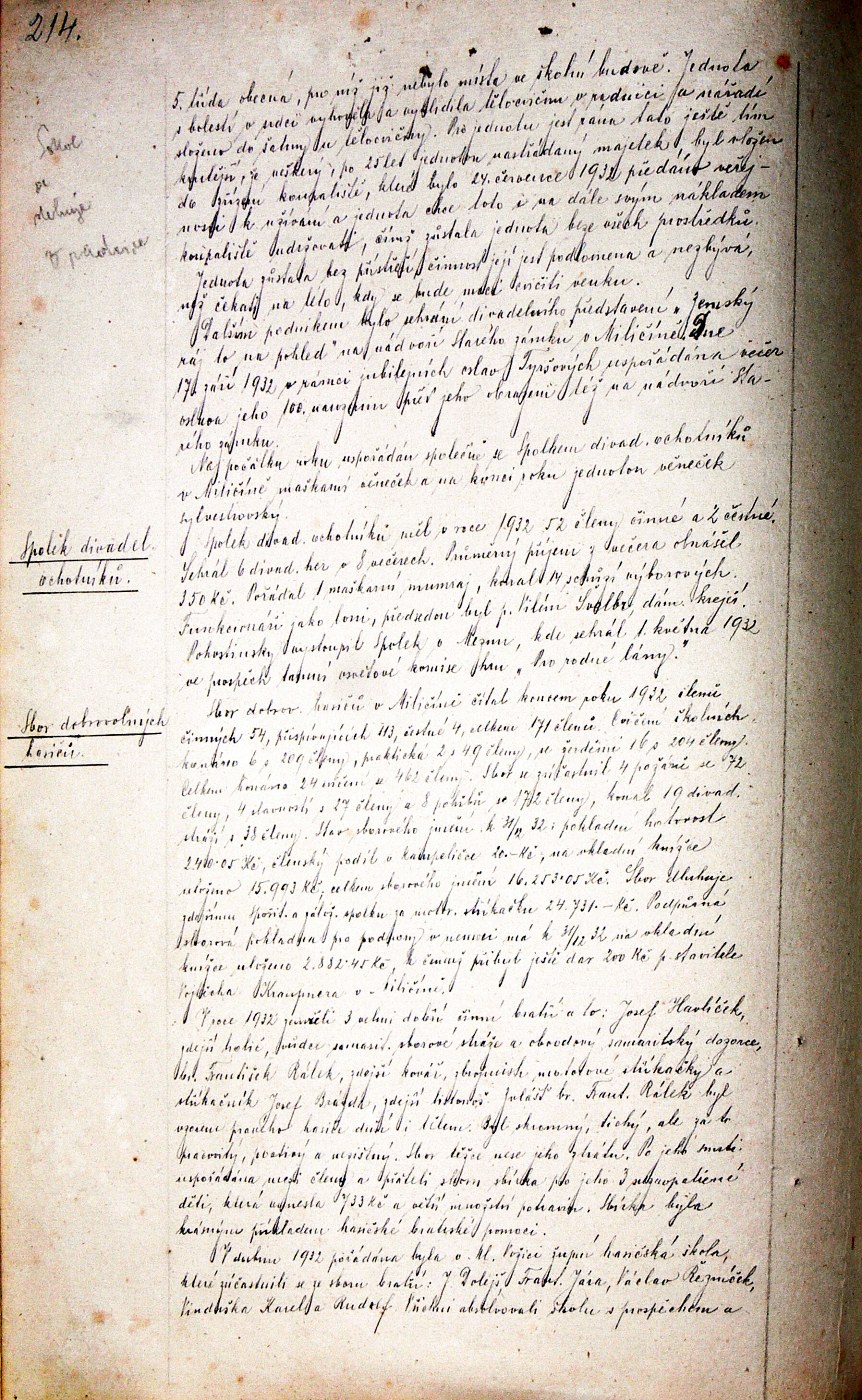 214.
5. třída obecná, pro níž již nebylo místa ve školní budově. Jednota
s bolestí v srdci vyhověla a vyklidila tělocvičnu v radnici a nářadí
složeno do šatny u tělocvičny. Pro jednotu jest rána tato ještě tím
krutější, je veškerý, po 25 let jednotou nastřádaný majetek, byl vložen
do zřízení koupaliště, které bylo 24. července 1932 předáno veřej-
nosti k užívání a jednota chce toto i na dále svým nákladem
koupaliště udržovati, čímž zůstala jednota beze všech prostředků.
Sokol
se
stěhuje
z radnice
Jednota zůstala bez přístřeší, činnost její jest podlomena a nezbývá,
než čekati na léto, kdy se bude moci cvičiti venku.
Dalším podnikem bylo sehrání divadelního představení „Zemský
ráj to na pohled" na nádvoří Starého zámku v Miličíně. Dne
17. září 1932 v rámci jubilejních oslav Tyršových uspořádána večer
oslava jeho 100. narozenin před jeho obrazem též na nádvoří Sta-
rého zámku.
Na počátku roku uspořádán společně se Spolkem divad. ochotníků
v Miličíně maškarní věneček a na konci roku jednotou věneček
sylvestrovský.
Spolek divadel.
ochotníků.
Spolek divad. ochotníků měl v roce 1932 52 členy činné a 2 čestné.
Sehrál 6 divad. her v 8 večerech. Průměrný příjem z večera obnášel
350 Kč. Pořádal 1 maškarní mumraj, konal 14 schůzí výborových.
Funkcionáři jako loni, předsedou byl p. Vilém dám. krejčí.
Pohostinsky vystoupil Spolek v Mezně, kde sehrál 1. května 1932
ve prospěch tamní osvětové komise hru „Pro rodné lány."
Sbor dobrovolných
hasičů.
Sbor dobrov. hasičů v Miličíně čítal koncem roku 1932 členů
činných 54, přispívajících 113, čestné 4, celkem 171 členů. Cvičení školních
konáno 6 s 209 členy, praktická 2 s 49 členy, se 16 s 204 členy.
Celkem konáno 24 cvičení se 462 členy. Sbor se zúčastnil 4 požárů se 72
členy, 4 slavností s 27 členy a 8 pohřbů se 172 členy, konal 19 divad.
stráží s 38 členy. Stav sborového jmění k 31/12 32: pokladní hotovost
240·05 Kč, členský podíl v kampeličce 20.- Kč, na vkladní knížce
uloženo 15.993 Kč, celkem sborového jmění 16.253·05 Kč. Sbor dluhuje
zdejšímu Spořit. a zálož. spolku za motor. stříkačku 24.731.- Kč. Podpůrná
sborová pokladna pro podpory v nemoci má k 31/12 32 na vkladní
knížce uloženo 2.882·45 Kč, k čemuž přibyl ještě dar 200 Kč p. stavitele
Vojtěcha Kraupnera v Miličíně.
V roce 1932 zemřeli 3 velmi dobří činné bratři a to: Josef Havlíček,
zdejší holič, vůdce samarit. sborové stráže a obvodový samaritský dozorce,
br. František Rálek, zdejší kovář, zbrojmistr motorové stříkačky a
stříkačník Josef Brandt, zdejší listonoš. Zvlášť br. Frant. Rálek byl
vzorem pravého hasiče duší i tělem. Byl skromný, tichý, ale za to
pracovitý, poctivý a nezištný. Sbor těžce nese jeho ztrátu. Po jeho smrti
uspořádána mezi členy a přáteli sboru sbírka pro jeho 3 nezaopatřené
děti, která vynesla 733 Kč a větší množství potravin. Sbírka byla
krásným příkladem hasičské bratrské pomoci.
V dubnu 1932 pořádána byla v Ml. Vožici župní hasičská škola,
které zúčastnili se ze sboru bratři: J. Dolejš, Frant. Jára, Václav Řezníček,
Vinduška Karel a Rudolf. Všichni absolvovali školu s prospěchem a